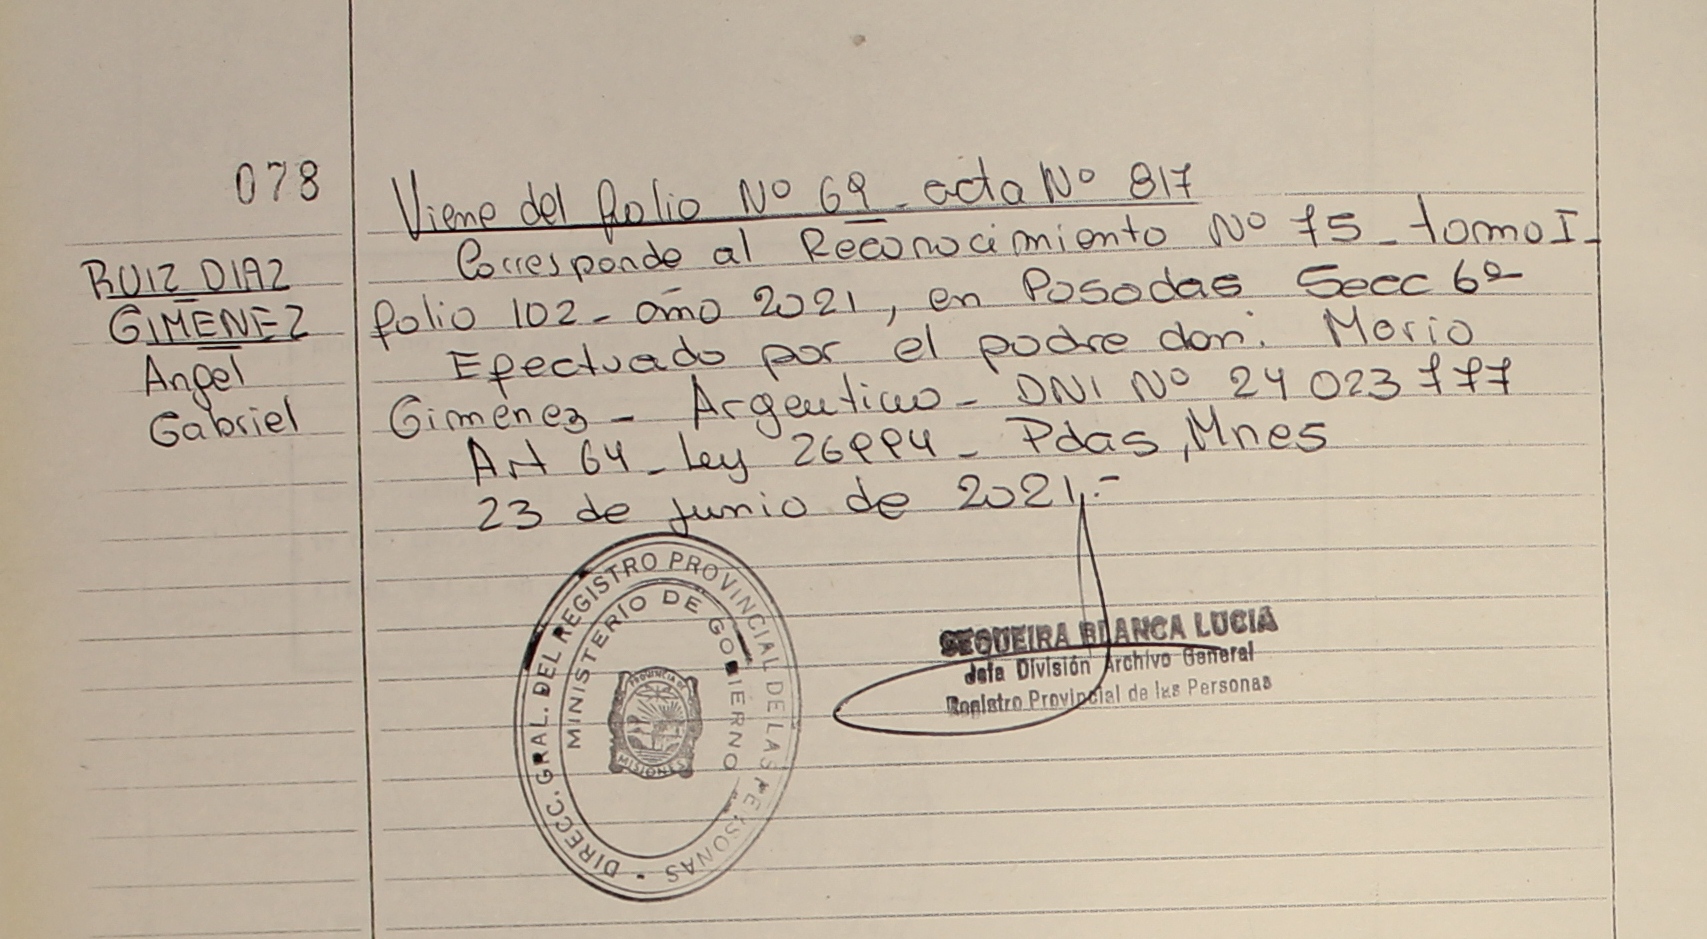 078
Viene del folio Nº 69 - acta Nº 817
Corresponde al Reconocimiento Nº 75 - tomo I -
RUIZ DIAZ
folio 102 - año 2021, en Posadas Secc 6º
GIMENEZ
Efectuado por el padre don: Mario
Angel
Gimenez - Argentino - DNI Nº 24 023 777
Gabriel
Art 64 - Ley 26994 - Pdas, Mnes
23 de Junio de 2021.-
DIRECC. GRAL. DEL REGISTRO PROVINCIAL DE LAS PERSONAS
MINISTERIO DE GOBIERNO
PROVINCIA DE
MISIONES
SEQUEIRA BLANCA LUCIA
Jefa División Archivo General
Registro Provincial de las Personas